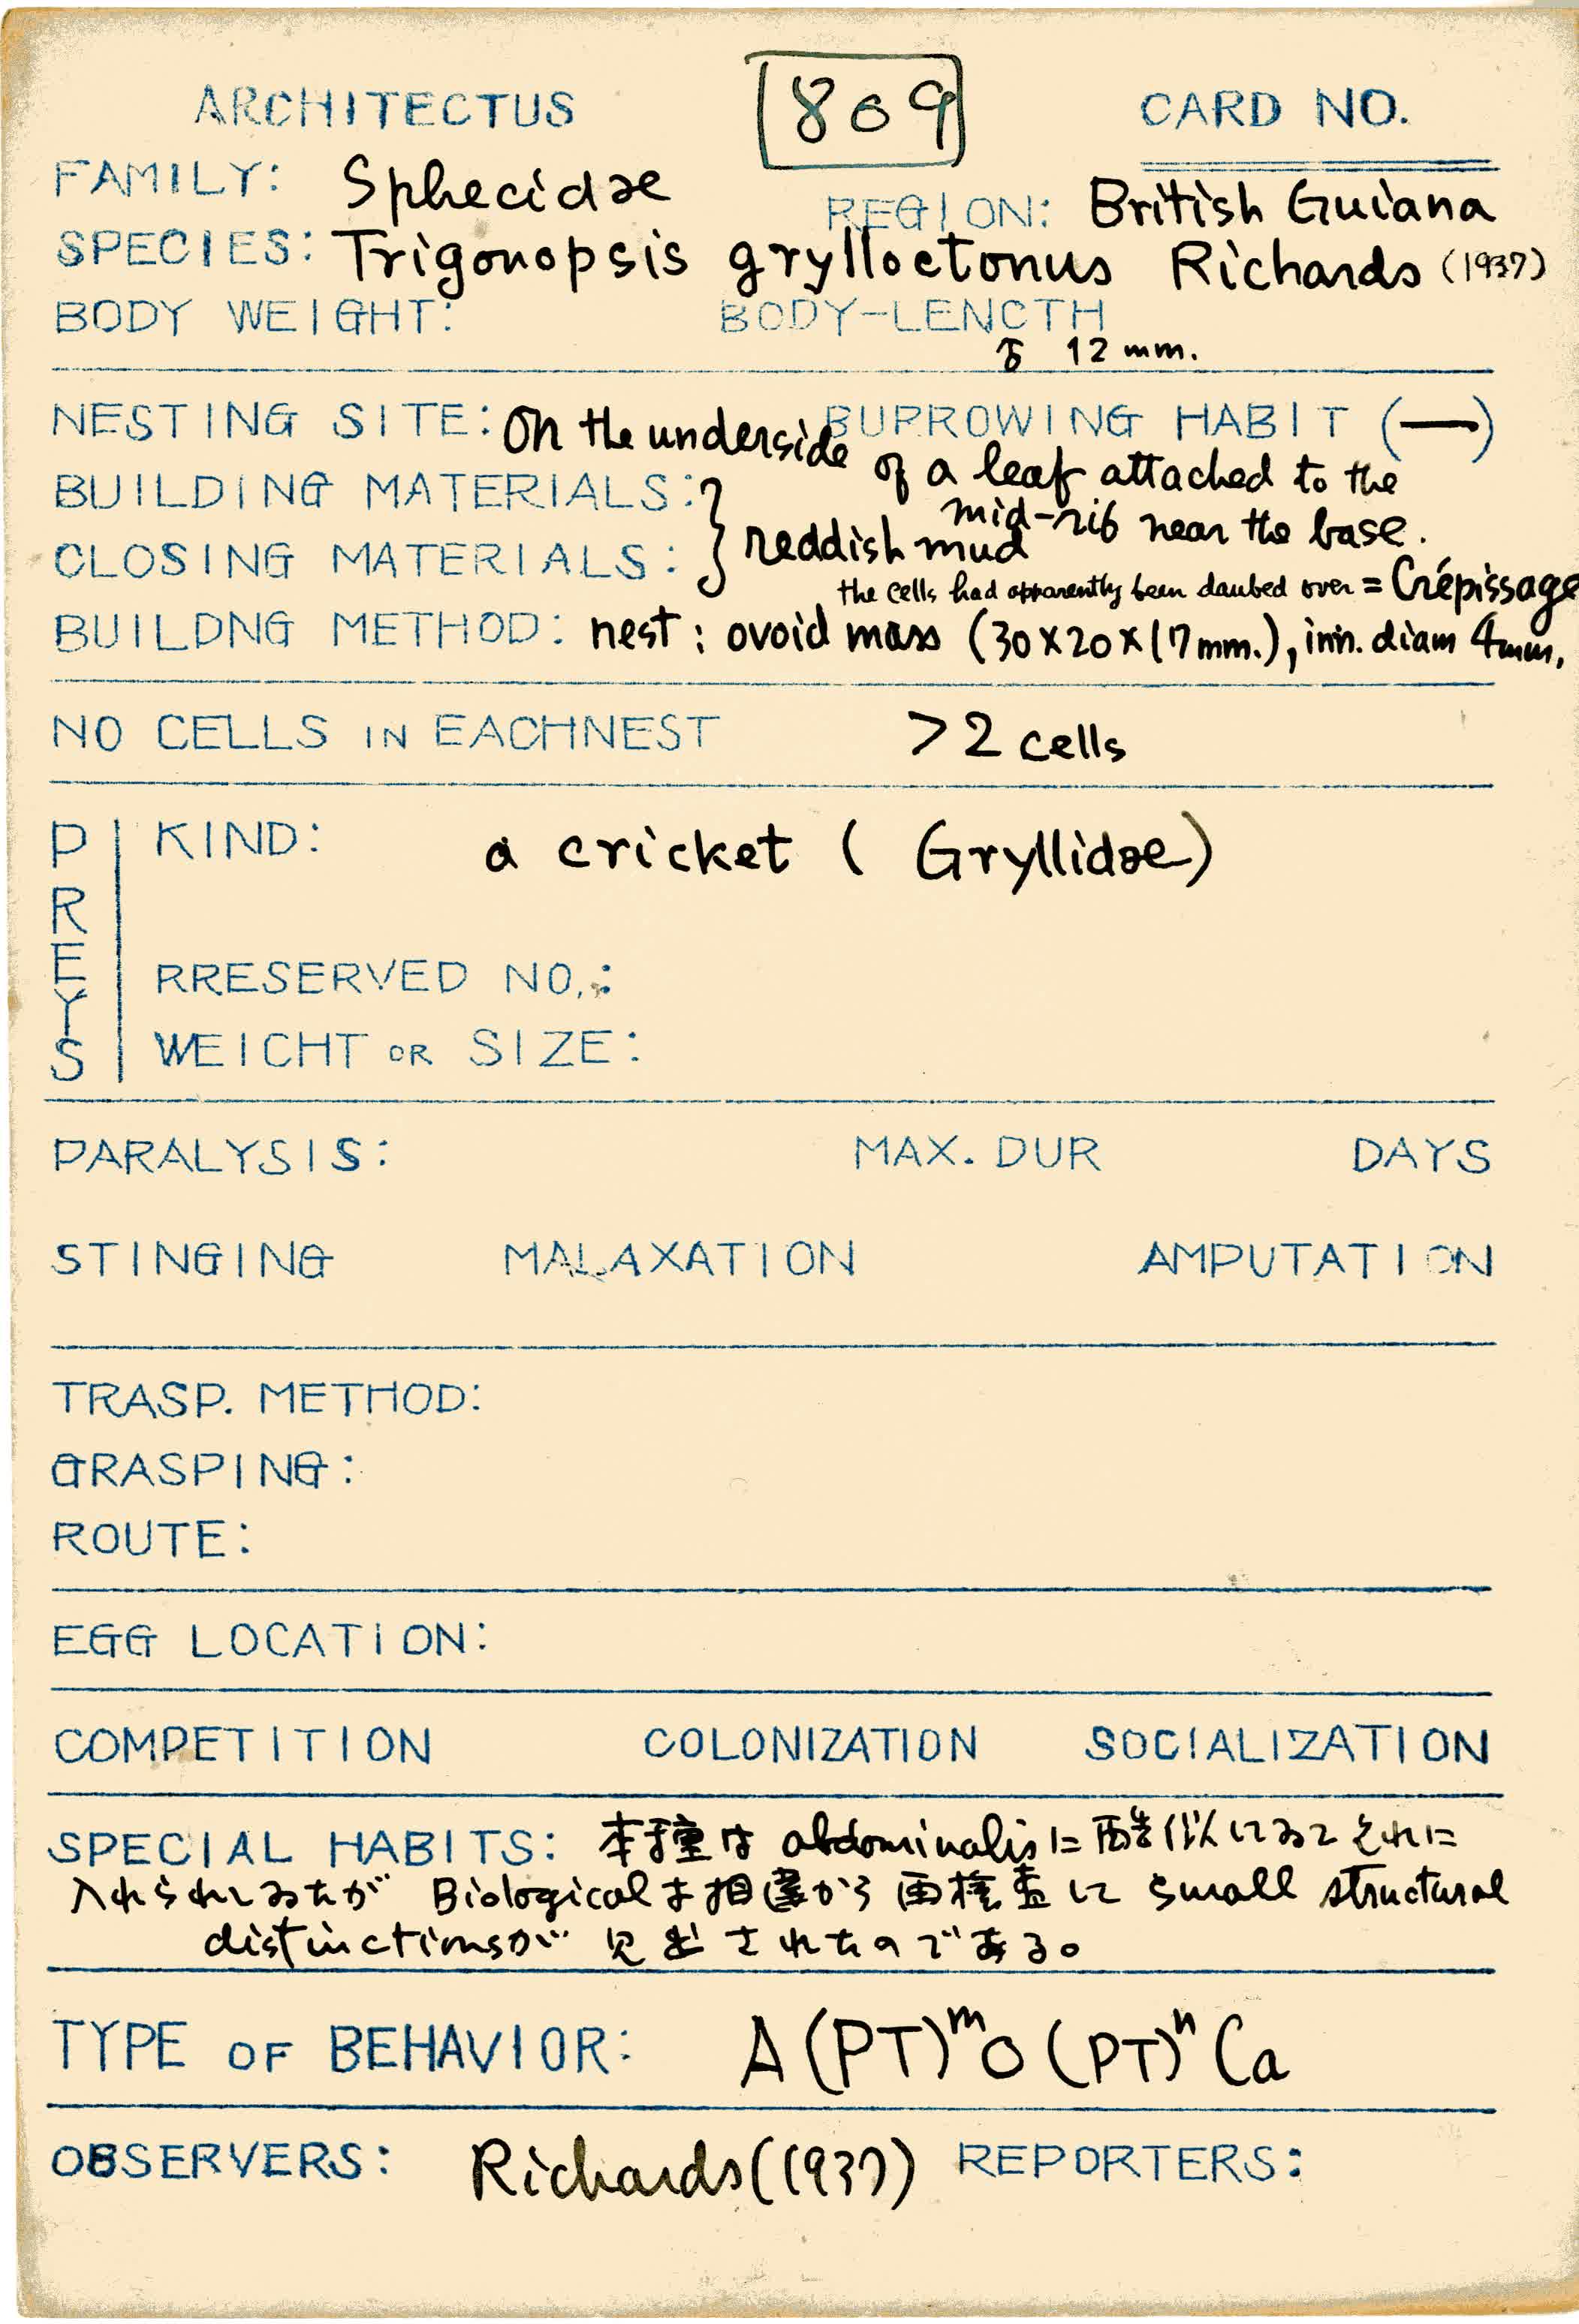 ARCHITECTUS 809 CARD NO.
FAMILY: Sphecidae REGION: British Guiana
SPECIES: Trigonopsis grylloctonus Richards (1937)
BODY WEIGHT: BODY-LENCTH
♂ 12 mm.
NESTING SITE: On the underside BURROWING HABIT (—)
of a leaf attached to the
BUILDING MATERIALS:
mid-rib near the base.
CLOSING MATERIALS: } reddish mud
the cells had apparently been daubed over = Crépissage
BUILDNG METHOD: nest: ovoid mass (30×20×17mm.), inn. diam 4mm,
NO CELLS IN EACHNEST >2 cells
PREYS
KIND: a cricket (Gryllidae)
RRESERVED NO.:
WEICHT OR SIZE:
PARALYSIS: MAX. DUR DAYS
STINGING MALAXATION AMPUTATION
TRASP. METHOD:
GRASPING:
ROUTE:
EGG LOCATION:
COMPETITION COLONIZATION SOCIALIZATION
SPECIAL HABITS: 本種は abdominalisに酷似しておってそれに
入れられておたが Biologicalな相違から再検査して small structural
distinctionsが見出されたのである。
TYPE OF BEHAVIOR: A(PT)ᵐO(PT)ⁿCa
OBSERVERS: Richards(1937) REPORTERS: